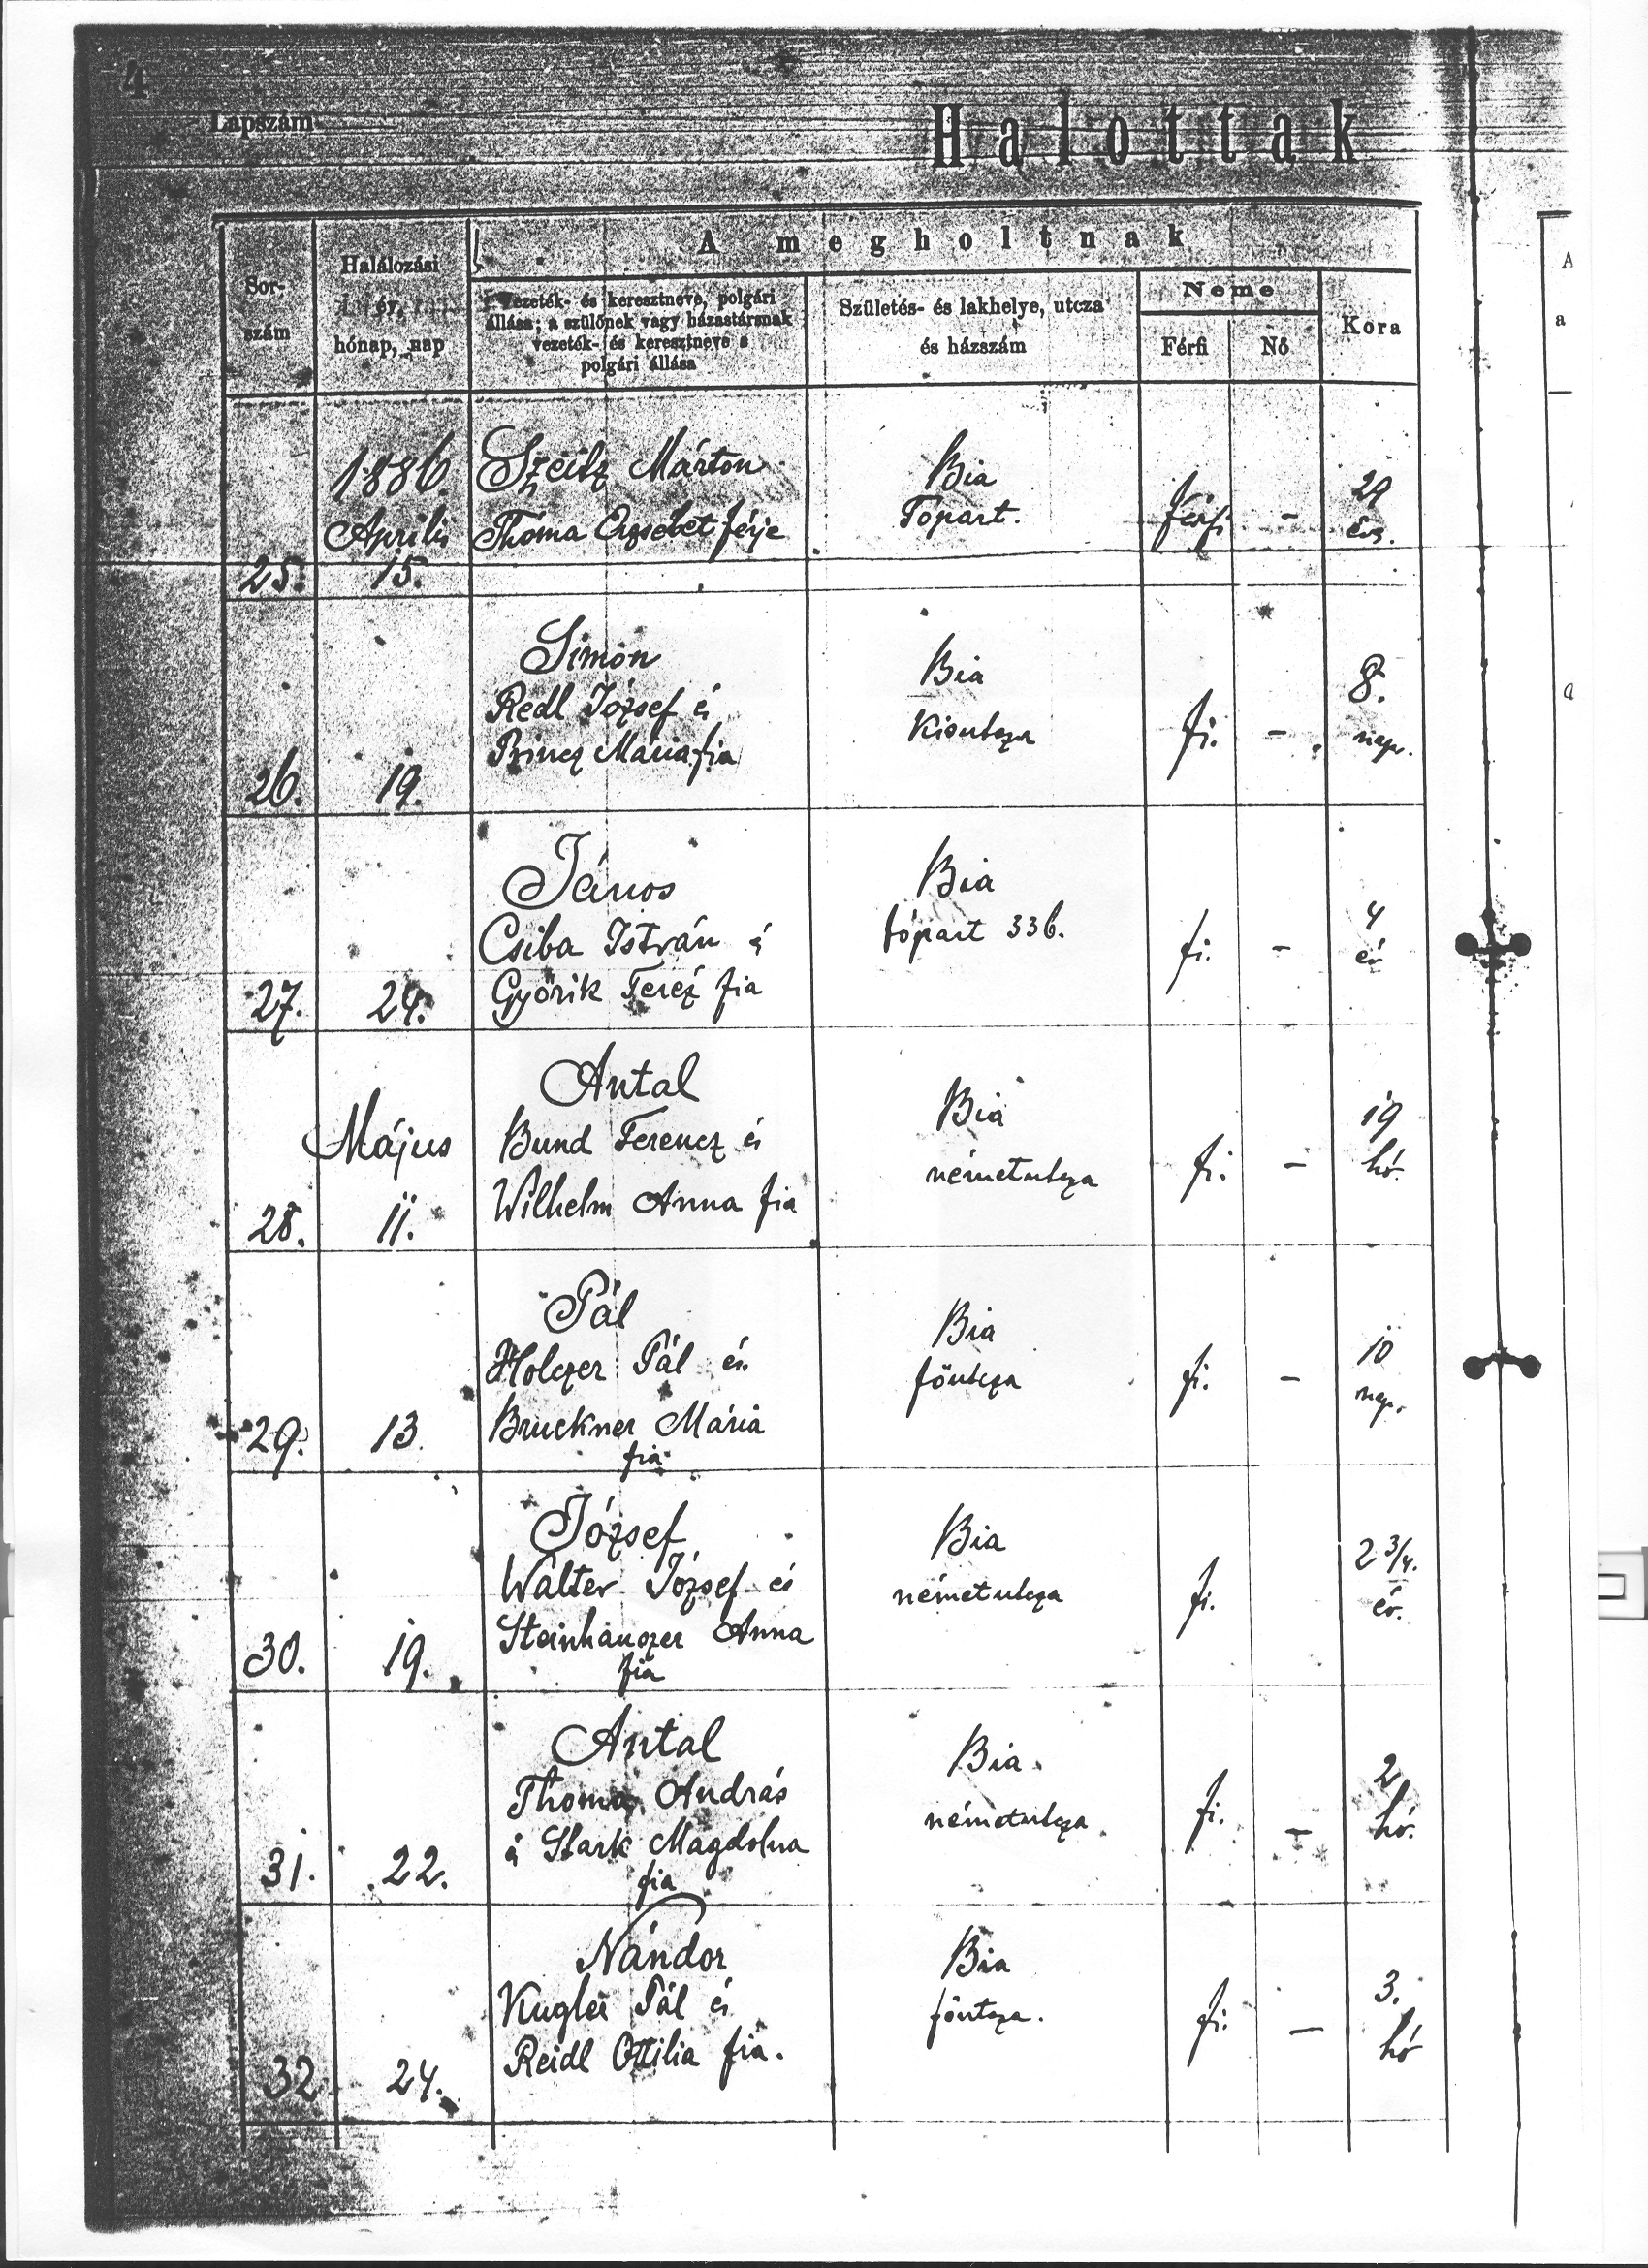 4
Lapszám
Halottak
Sor-
szám
Halálozási
év,
hónap, nap
A megholtnak
Vezeték- és keresztneve, polgári
állása; a szülőnek vagy házastársnak
vezeték- és keresztneve s
polgári állása
Születés- és lakhelye, utcza
és házszám
Neme
Férfi
Nő
Kora
A
a
25.
1886.
Aprilis
15.
Szeitz Márton
Thóma Erzsébet férje
Bia
Tópart.
férfi
-
29
év.
26.
19.
Simon
Redl József és
Princz Mária fia
Bia
Kisutcza
fi.
-
8.
nap.
27.
24.
János
Csiba István é
Győrik Teréz fia
Bia
tópart 336.
fi.
-
4
év
28.
Május
11.
Antal
Bund Ferencz és
Wilhelm Anna fia
Bia
németutcza
fi.
-
19
hó.
29.
13.
Pál
Holczer Pál és
Bruckner Mária
fia
Bia
főutcza
fi.
-
10
nap.
30.
19.
József
Walter József és
Steinhauzer Anna
fia
Bia
németutcza
fi.
2 3/4.
év.
31.
22.
Antal
Thoma András
é Stark Magdolna
fia
Bia
németutcza
fi.
-
2
hó.
32
24.
Nándor
Kugler Pál és
Reidl Ottilia fia.
Bia
főutcza.
fi.
-
3.
hó